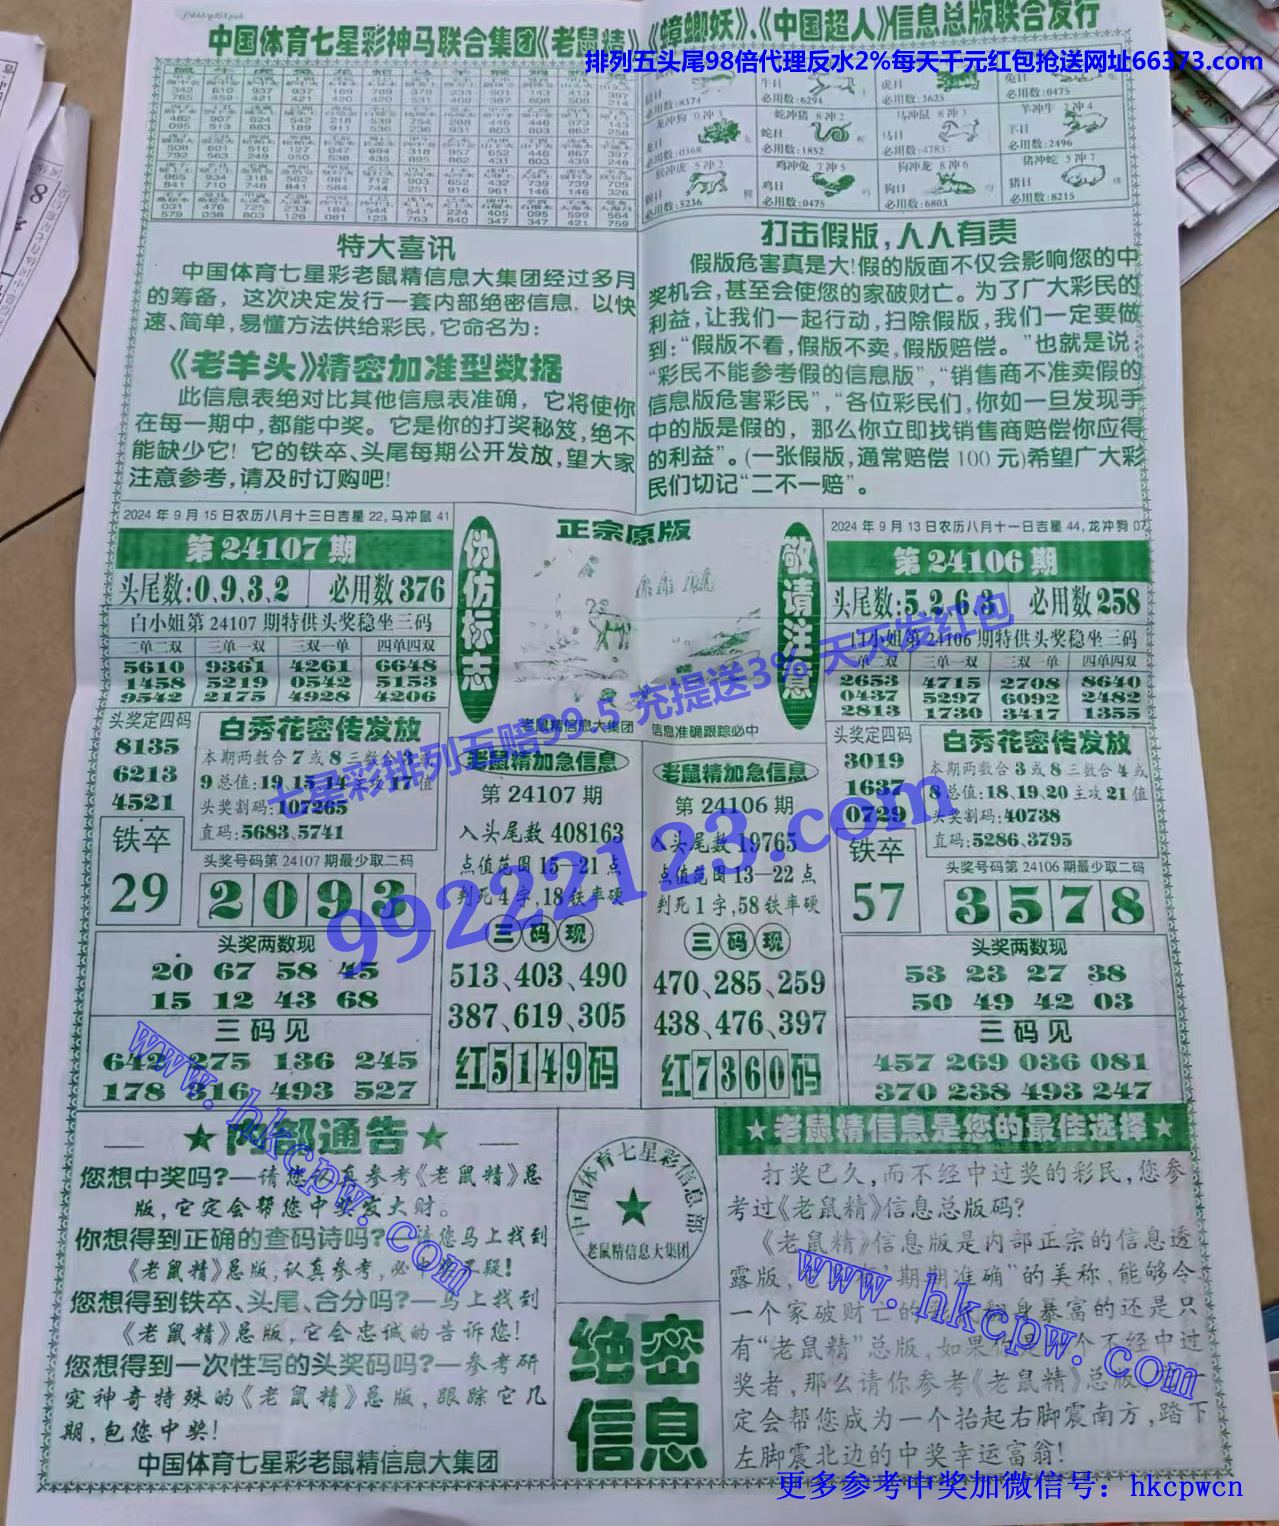 中国体育七星彩神马联合集团《老鼠精》、《蟑螂妖》、《中国超人》信息总版联合发行
排列五头尾98倍代理反水2%每天千元红包抢送网址66373.com
必用数:8374
必用数:6294
必用数:3625
必用数:0475
龙冲狗 0冲3
蛇冲猪 8冲2
马冲鼠 8冲3
羊冲牛 3冲4
龙日
蛇日
马日
羊日
必用数:0368
必用数:1852
必用数:4783
必用数:2496
猴冲虎 5冲2
鸡冲兔 7冲5
狗冲龙 8冲6
猪冲蛇 5冲7
鸡日
狗日
猪日
必用数:5236
必用数:0475
必用数:6803
必用数:8215
特大喜讯
中国体育七星彩老鼠精信息大集团经过多月
的筹备，这次决定发行一套内部绝密信息，以快
速、简单，易懂方法供给彩民，它命名为：
《老羊头》精密加准型数据
此信息表绝对比其他信息表准确，它将使你
在每一期中，都能中奖。它是你的打奖秘笈，绝不
能缺少它！它的铁卒、头尾每期公开发放，望大家
注意参考，请及时订购吧！
打击假版，人人有责
假版危害真是大！假的版面不仅会影响您的中
奖机会，甚至会使您的家破财亡。为了广大彩民的
利益，让我们一起行动，扫除假版，我们一定要做
到：“假版不看，假版不卖，假版赔偿。”也就是说：
“彩民不能参考假的信息版”，“销售商不准卖假的
信息版危害彩民”，“各位彩民们，你如一旦发现手
中的版是假的，那么你立即找销售商赔偿你应得
的利益”。(一张假版，通常赔偿100元)希望广大彩
民们切记“二不一赔”。
2024年9月15日农历八月十三日吉星22,马冲鼠41
第24107期
头尾数:0、9、3、2 必用数376
白小姐第24107期特供头奖稳坐三码
二单二双 三单一双 三双一单 四单四双
5610 9361 4261 6648
1458 5219 0542 5153
9542 2175 4928 4206
头奖定四码
8135
6213
4521
白秀花密传发放
本期两数合7或8三数合3或
9总值:19、15、14主攻17值
头奖割码:107265
直码:5683、5741
铁卒
29
头奖号码第24107期最少取二码
2 0 9 3
头奖两数现
20 67 58 45
15 12 43 68
三码见
642 275 136 245
178 316 493 527
伪仿标志
正宗原版
敬请注意
老鼠精信息大集团 信息准确跟踪必中
老鼠精加急信息
第24107期
入头尾数408163
点值范围15—21点
判死4字,18铁率硬
三码现
513、403、490
387、619、305
红5149码
老鼠精加急信息
第24106期
入头尾数19765
点值范围13—22点
判死1字,58铁率硬
三码现
470、285、259
438、476、397
红7360码
2024年9月13日农历八月十一日吉星44,龙冲狗07
第24106期
头尾数:5、2、6、3 必用数258
白小姐第24106期特供头奖稳坐三码
二单二双 三单一双 三双一单 四单四双
2653 4715 2708 8640
0437 5297 6092 2482
2813 1730 3417 1355
头奖定四码
3019
1637
0729
白秀花密传发放
本期两数合3或8三数合4或
8总值:18、19、20主攻21值
头奖割码:40738
直码:5286、3795
铁卒
57
头奖号码第24106期最少取二码
3 5 7 8
头奖两数现
53 23 27 38
50 49 42 03
三码见
457 269 036 081
370 238 493 247
七星彩排列五赔99.5 充提送3% 天天发红包
99222123.com
www.hkcpw.com
www.hkcpw.com
★内部通告★
您想中奖吗？—请您认真参考《老鼠精》总
版，它定会帮您中奖发大财。
你想得到正确的查码诗吗？—请您马上找到
《老鼠精》总版，认真参考，必中无疑！
您想得到铁卒、头尾、合分吗？—马上找到
《老鼠精》总版，它会忠诚的告诉您！
您想得到一次性写的头奖码吗？—参考研
究神奇特殊的《老鼠精》总版，跟踪它几
期，包您中奖！
中国体育七星彩老鼠精信息大集团
中国体育七星彩信息总部
★
老鼠精信息大集团
绝密
信息
★老鼠精信息是您的最佳选择★
打奖已久，而不经中过奖的彩民，您参
考过《老鼠精》信息总版码？
《老鼠精》信息版是内部正宗的信息透
露版，“期期准确”的美称，能够令
一个家破财亡的彩民翻身暴富的还是只
有“老鼠精”总版，如果你是一个不经中过
奖者，那么请你参考《老鼠精》总版，
定会帮您成为一个抬起右脚震南方，踏下
左脚震北边的中奖幸运富翁！
更多参考中奖加微信号：hkcpwcn